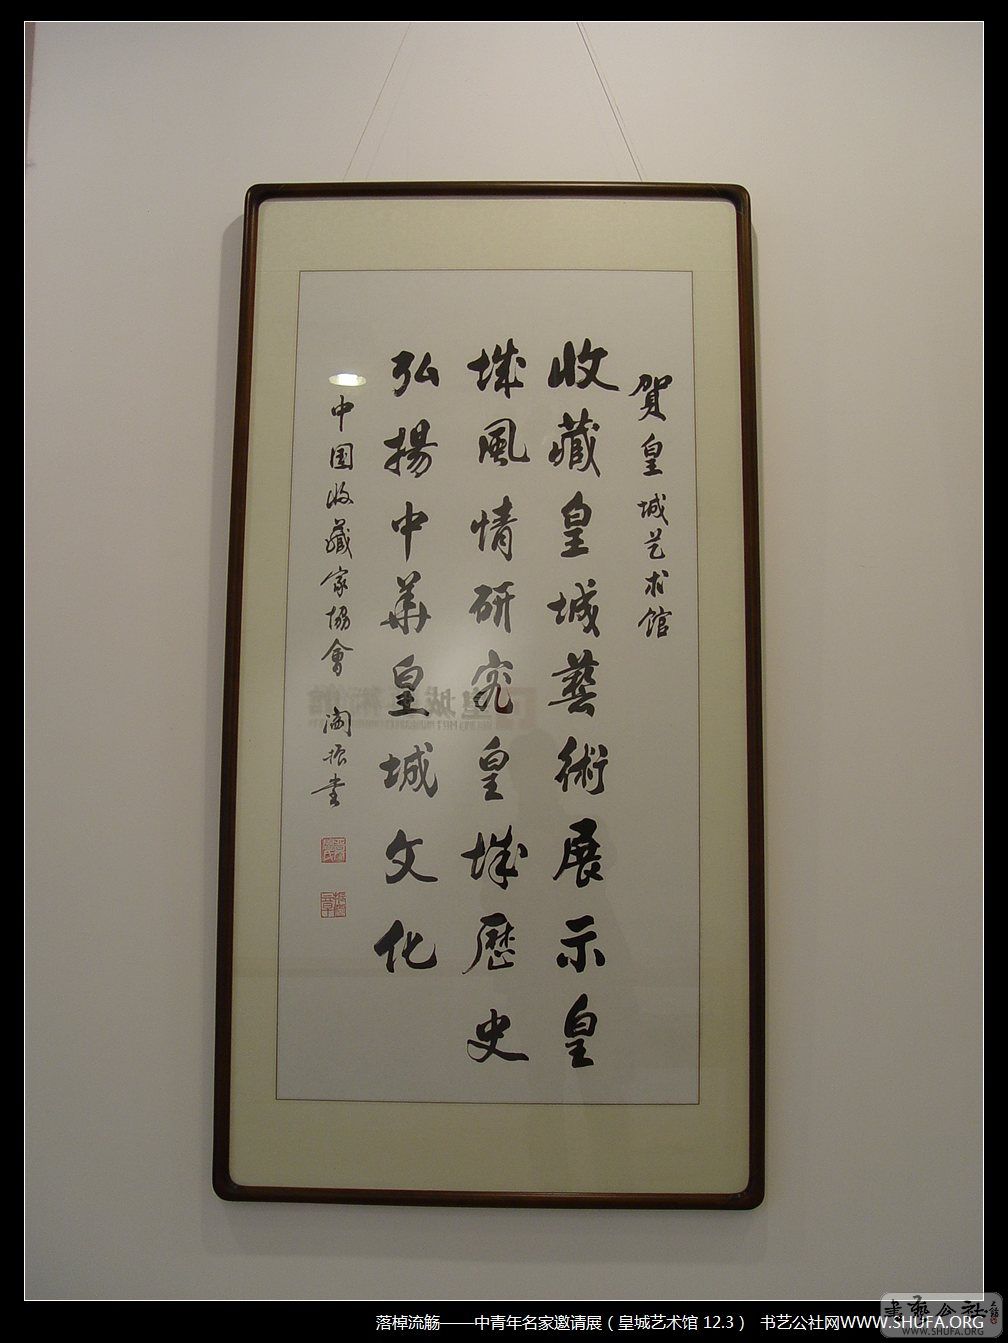 贺皇城艺术馆
收藏皇城藝術展示皇
城風情研究皇城歷史
弘揚中華皇城文化
中国收藏家協會 阎振堂
落棹流觞——中青年名家邀请展（皇城艺术馆 12.3） 书艺公社网WWW.SHUFA.ORG
書藝公社
WWW.SHUFA.ORG